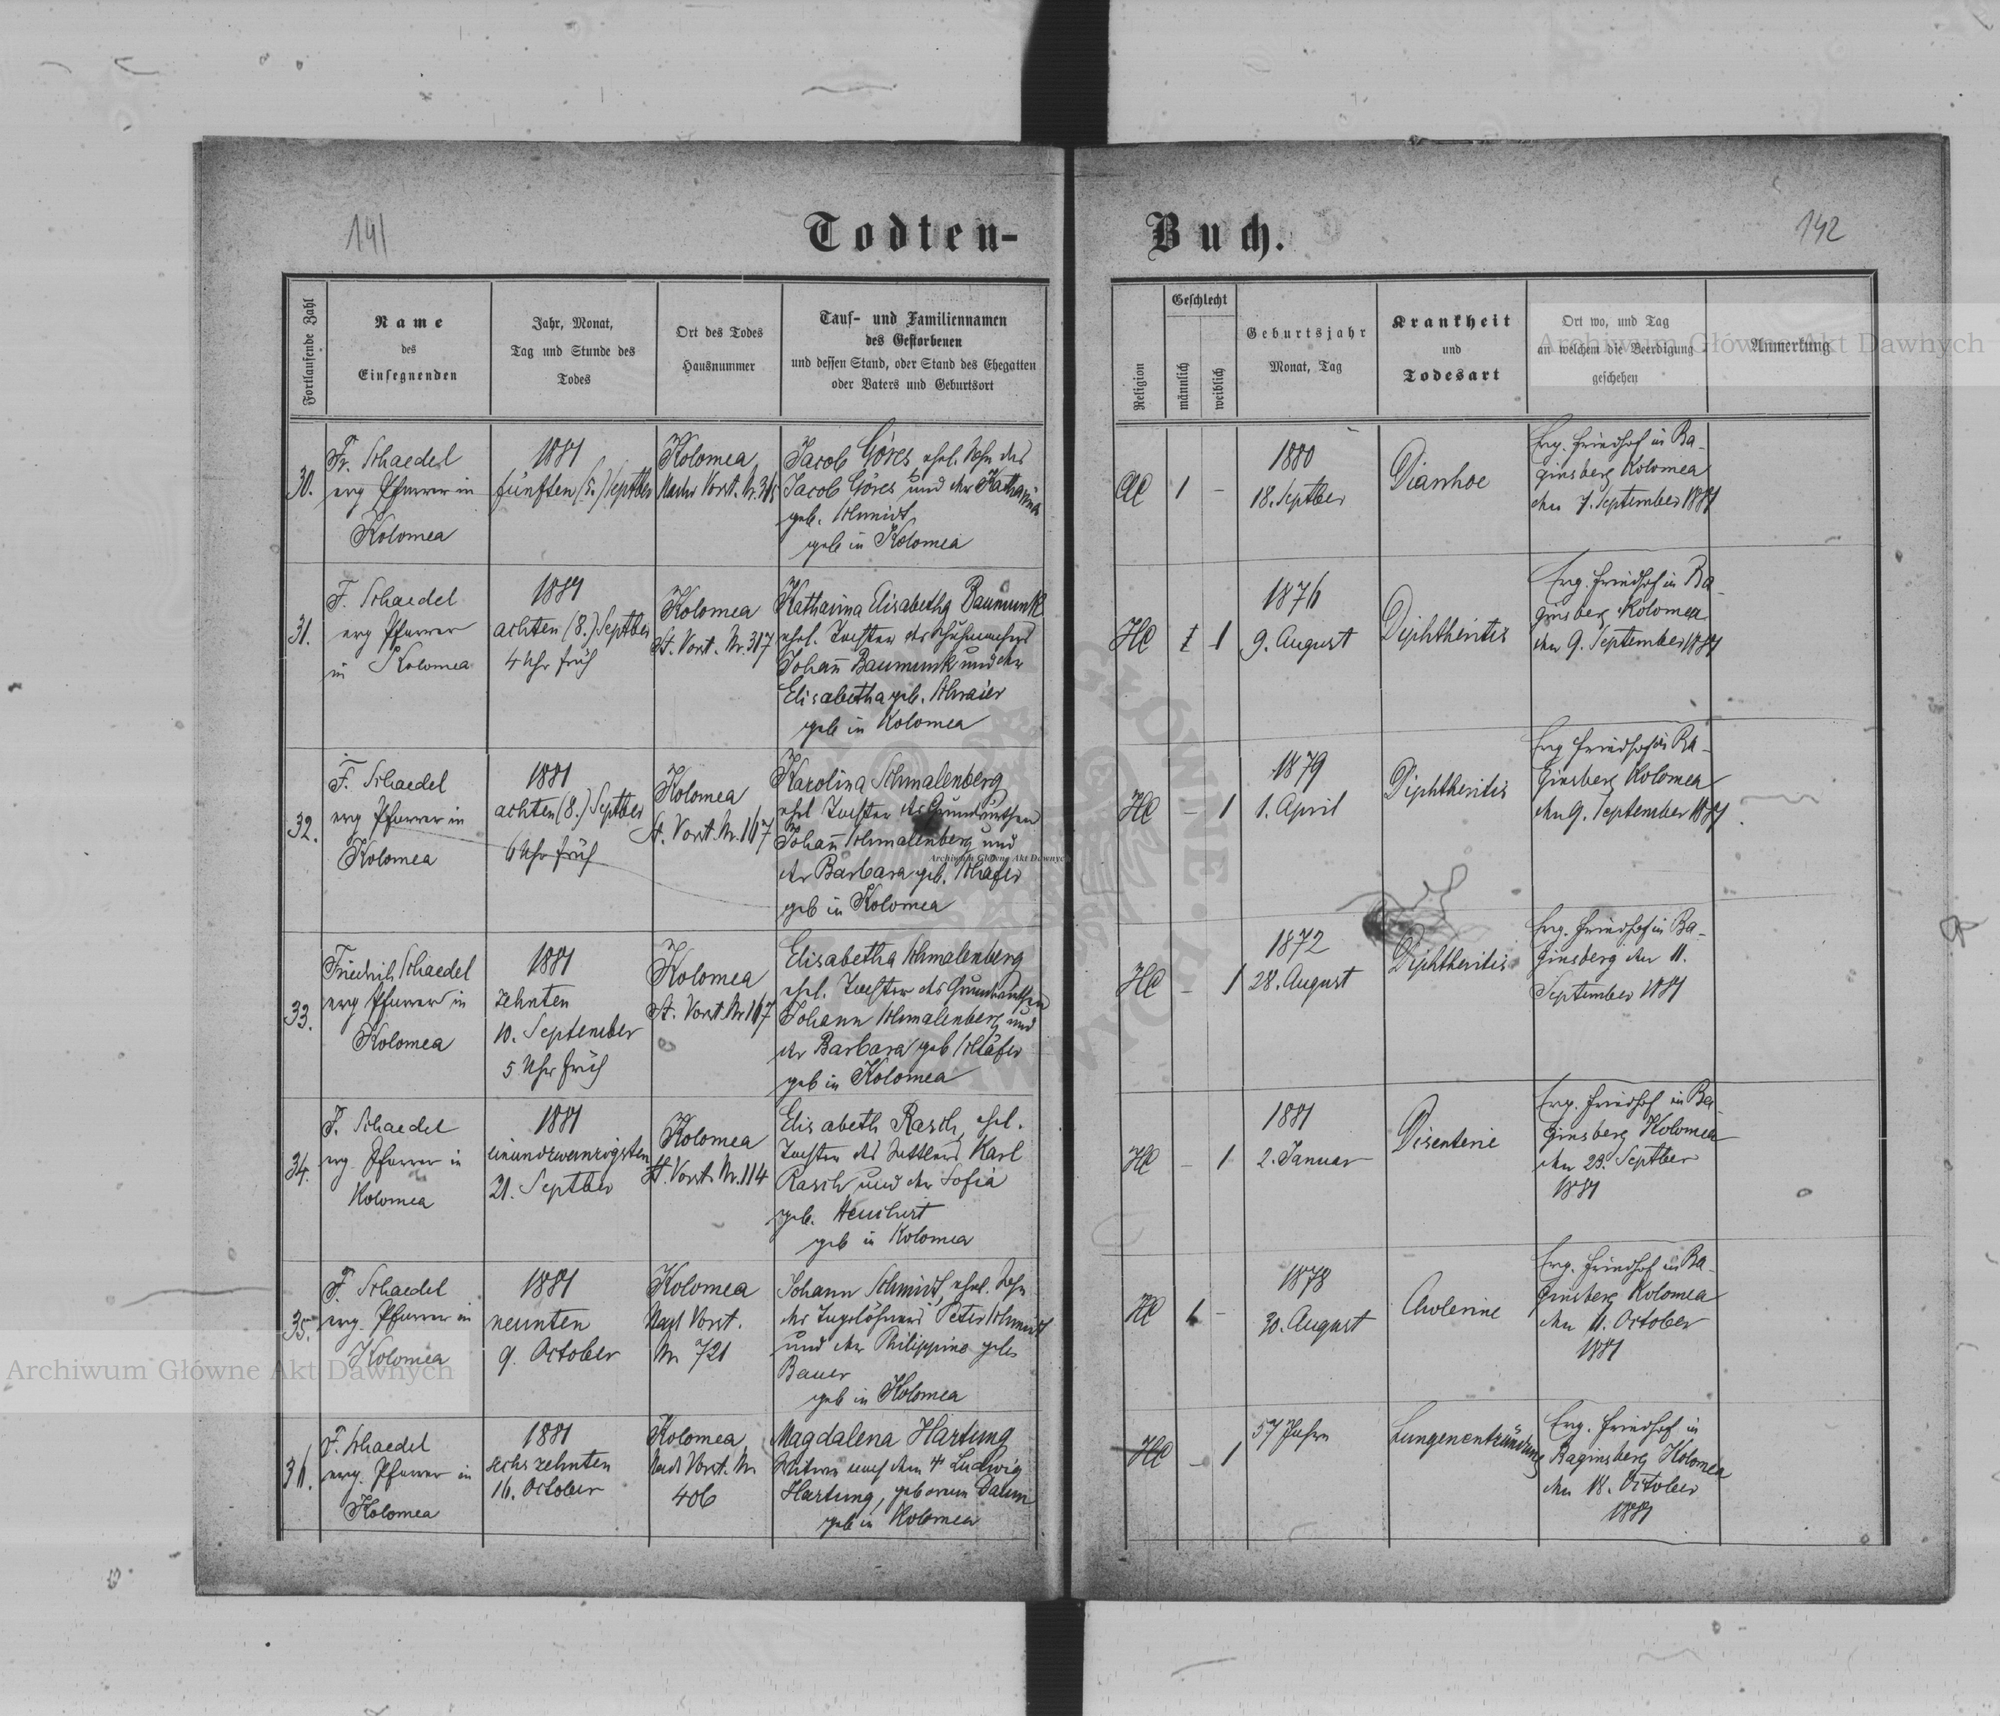 141
Todten-
Buch.
142
Fortlaufende Zahl
Name
des
Einsegnenden
Jahr, Monat,
Tag und Stunde des
Todes
Ort des Todes
Hausnummer
Tauf- und Familiennamen
des Gestorbenen
und dessen Stand, oder Stand des Ehegatten
oder Vaters und Geburtsort
Religion
Geschlecht
männlich
weiblich
Geburtsjahr
Monat, Tag
Krankheit
und
Todesart
Ort wo, und Tag
an welchem die Beerdigung
geschehen
Anmerkung
30.
Fr. Schaedel
evg Pfarrer in
Kolomea
1881
fünften (5.) Septber
Kolomea
Vorst. Nr.
Jacob Göres, ehel. Sohn des
Jacob Göres und der Katharina
geb. Schmidt
geb in Kolomea
AC
1
-
1880
18. Septber
Diarrhoe
Evg. Friedhof in Ba-
ginsberg Kolomea
den 7. September 1881
31.
F. Schaedel
evg Pfarrer
in Kolomea
1881
achten (8.) Septber
4 Uhr früh
Kolomea
St. Vorst. Nr. 317
Katharina Elisabetha Baumunk
ehel. Tochter des Schuhmachers
Johañ Baumunk und der
Elisabetha geb. Schraier
geb in Kolomea
HC
1
1876
9. August
Diphtheritis
Evg. Friedhof in Ba-
ginsberg Kolomea
den 9. September 1881
32.
F. Schaedel
evg Pfarrer in
Kolomea
1881
achten (8.) Septber
6 Uhr früh
Kolomea
St. Vorst. Nr. 167
Karolina Schmalenberg
ehel Tochter des Grundwirthen
Johañ Schmalenberg und
der Barbara geb. Schäfer
geb in Kolomea
HC
-
1
1879
1. April
Diphtheritis
Evg Friedhof in Ba-
ginsberg Kolomea
den 9. September 1881
33.
Friedrich Schaedel
evg Pfarrer in
Kolomea
1881
zehnten
10. September
5 Uhr früh
Kolomea
St. Vorst Nr 167
Elisabetha Schmalenberg
ehel. Tochter des Grundwirthen
Johann Schmalenberg und
der Barbara geb Schäfer
geb in Kolomea
HC
-
1
1872
28. August
Diphtheritis
Evg. Friedhof in Ba-
ginsberg den 11.
September 1881
34.
F. Schaedel
evg. Pfarrer in
Kolomea
1881
einundzwanzigsten
21. Septber
Kolomea
St. Vorst. Nr. 114
Elisabeth Rasch, ehel.
Tochter des Karl
Rasch und der Sofia
geb.
geb in Kolomea
HC
-
1
1881
2. Januar
Disenterie
Evg. Friedhof in Ba-
ginsberg Kolomea
den 23. Septber
1881
35.
F. Schaedel
evg. Pfarrer in
Kolomea
1881
neunten
9. October
Kolomea
Vorst.
Nr 721
Johann Schmidt, ehel. Sohn
des Tagelöhners Peter Schmidt
und der Philippine geb
Bauer
geb in Kolomea
HC
1
-
1878
30. August
Cholerine
Evg. Friedhof in Ba-
ginsberg Kolomea
den 11. October
1881
36.
F. Schaedel
evg. Pfarrer in
Kolomea
1881
sechszehnten
16. October
Kolomea
Vorst. Nr.
406
Magdalena Hartung
Witwe nach dem † Ludwig
Hartung, geborene Daum
geb in Kolomea
HC
-
1
57 Jahre
Lungenentzündung
Evg. Friedhof in
Baginsberg Kolomea
den 18. October
1881
Archiwum Główne Akt Dawnych
Archiwum Główne Akt Dawnych
Archiwum Główne Akt Dawnych